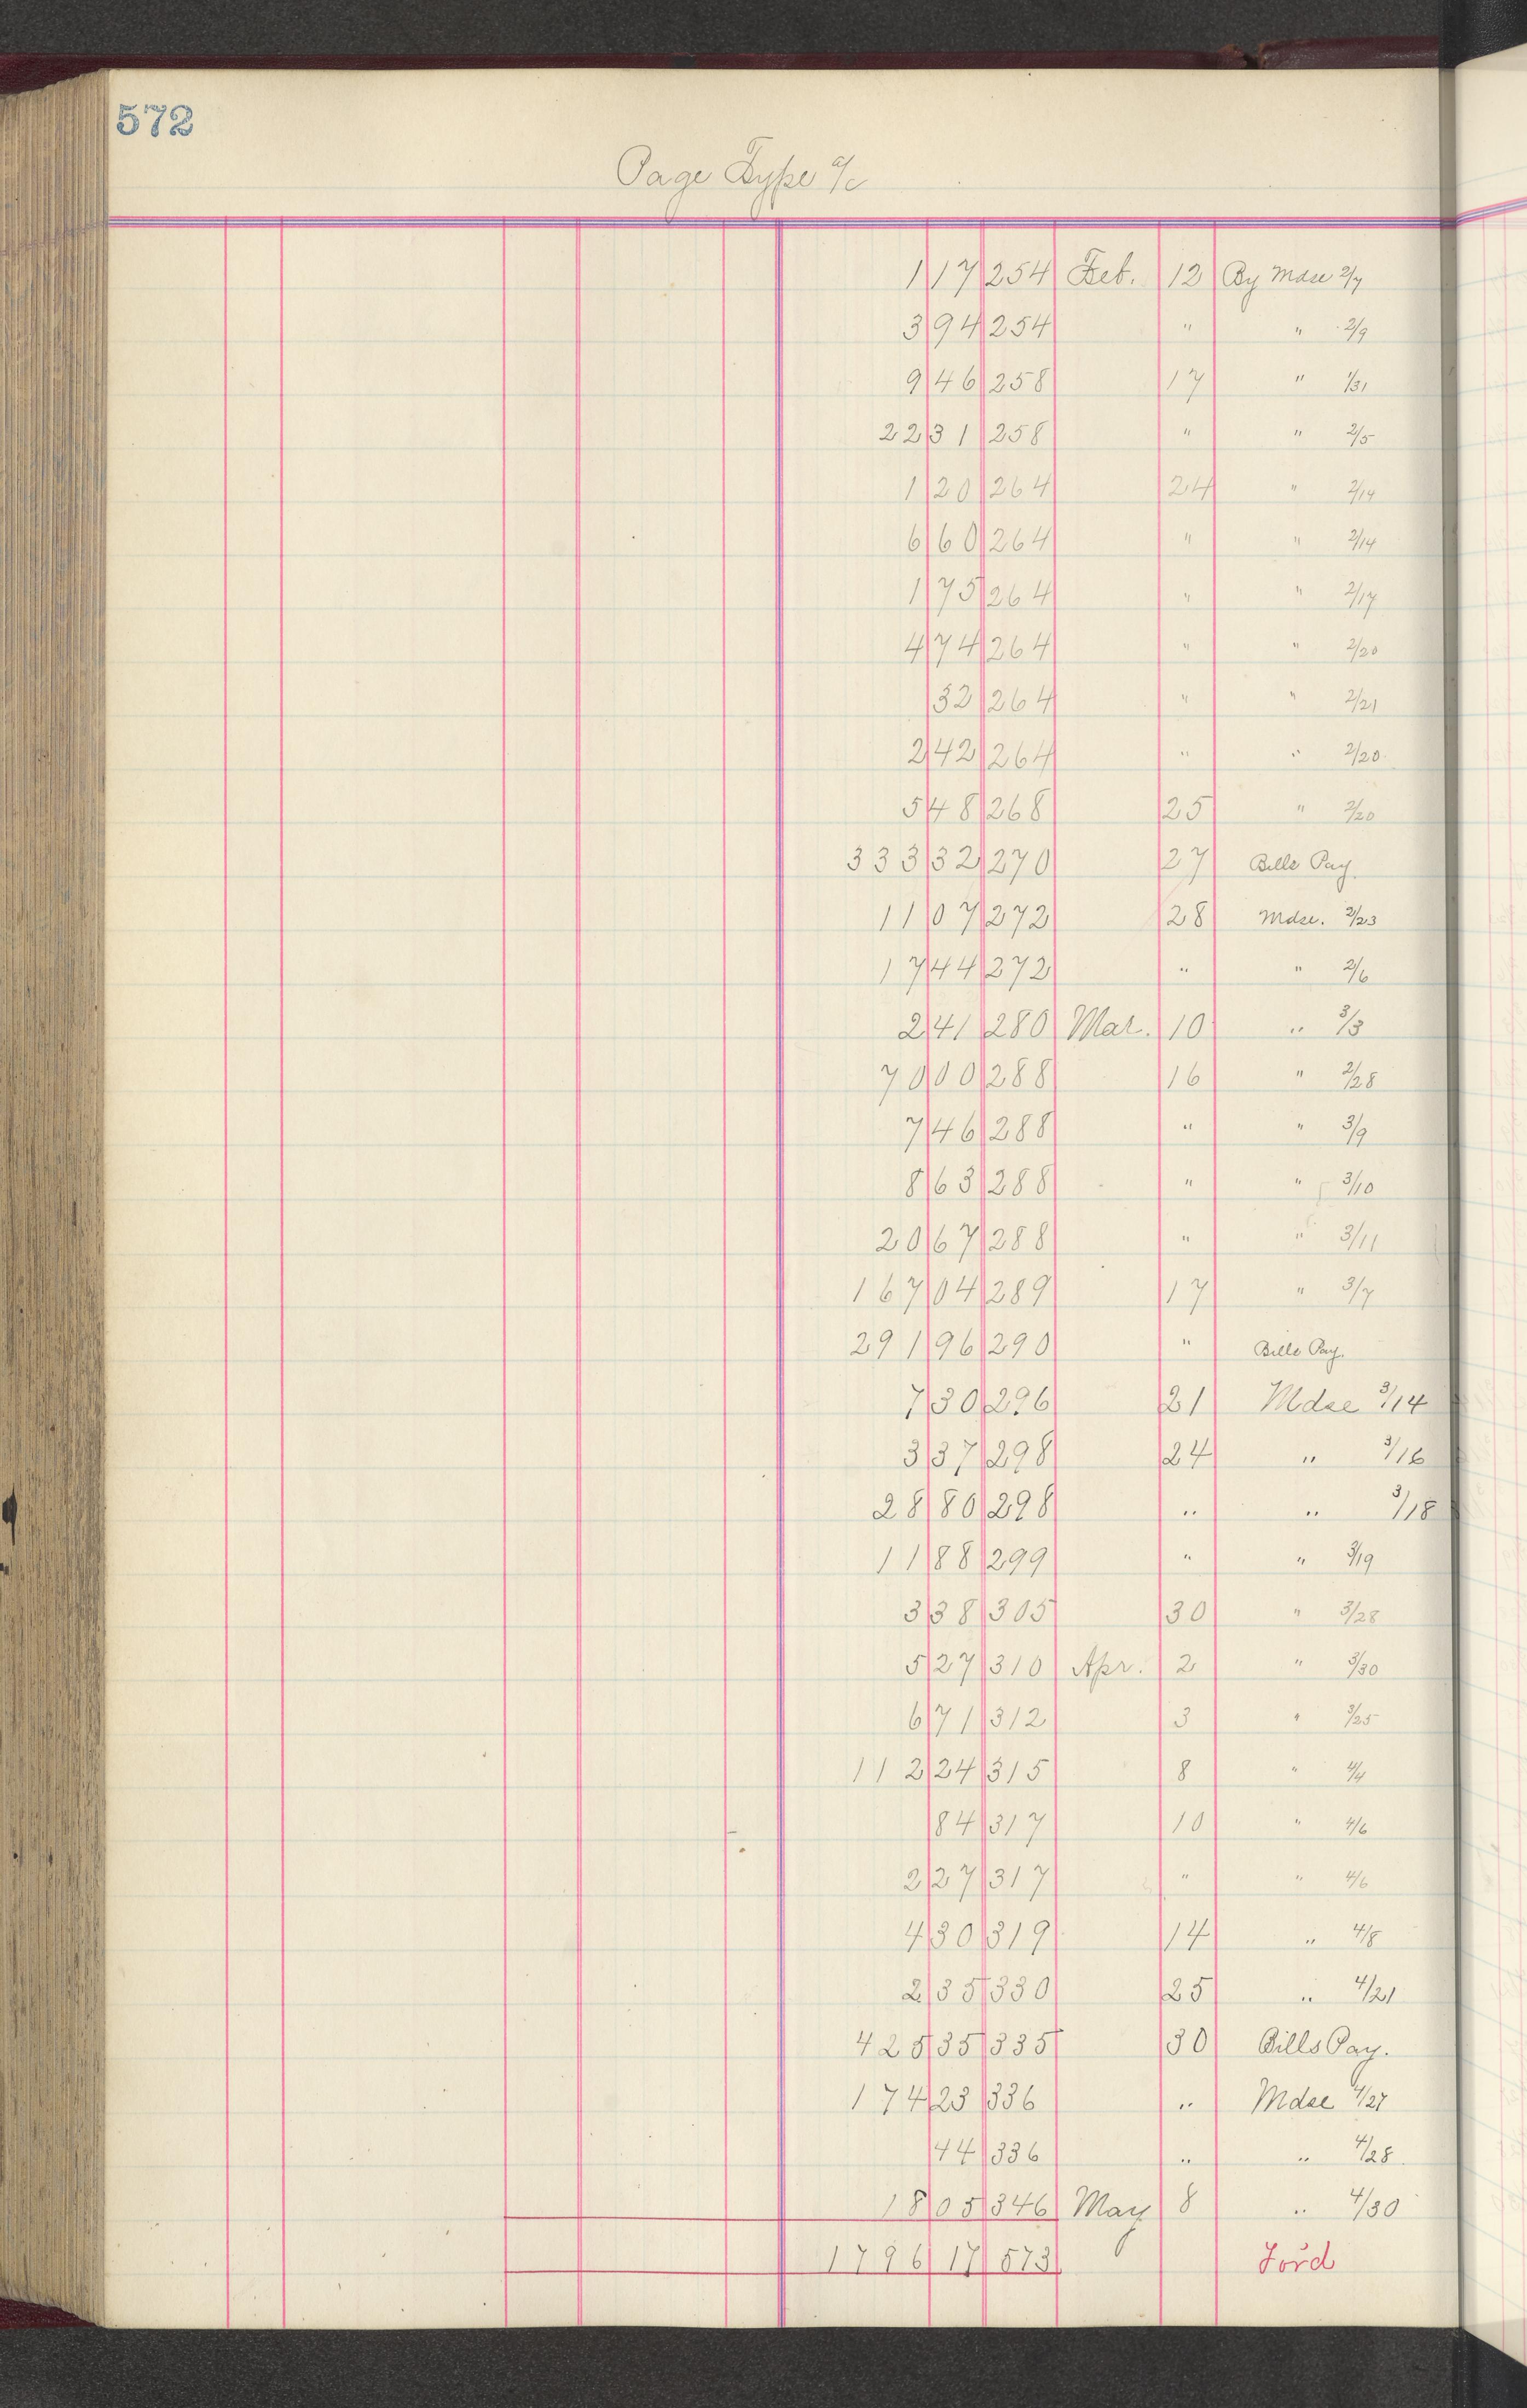 572
Page Type a/c
1 17 254 Feb. 12 By Mdse 2/7
3 94 254 " " 2/9
9 46 258 17 " 1/31
22 31 258 " " 2/5
1 20 264 24 " 2/14
6 60 264 " " 2/14
1 75 264 " " 2/17
4 74 264 " " 2/20
32 264 " " 2/21
2 42 264 " " 2/20
5 48 268 25 " 2/20
333 32 270 27 Bills Pay.
11 07 272 28 Mdse. 2/23
17 44 272 " " 2/6
2 41 280 Mar. 10 " 3/3
70 00 288 16 " 2/28
7 46 288 " " 3/9
8 63 288 " " 3/10
20 67 288 " " 3/11
167 04 289 17 " 3/7
291 96 290 " Bills Pay.
7 30 296 21 Mdse 3/14
3 37 298 24 " 3/16
28 80 298 " " 3/18
11 88 299 " " 3/19
3 38 305 30 " 3/28
5 27 310 Apr. 2 " 3/30
6 71 312 3 " 3/25
112 24 315 8 " 4/4
84 317 10 " 4/6
2 27 317 " " 4/6
4 30 319 14 " 4/8
2 35 330 25 " 4/21
425 35 335 30 Bills Pay.
174 23 336 " Mdse 4/27
44 336 " " 4/28
18 05 346 May 8 " 4/30
1796 17 573 Ford